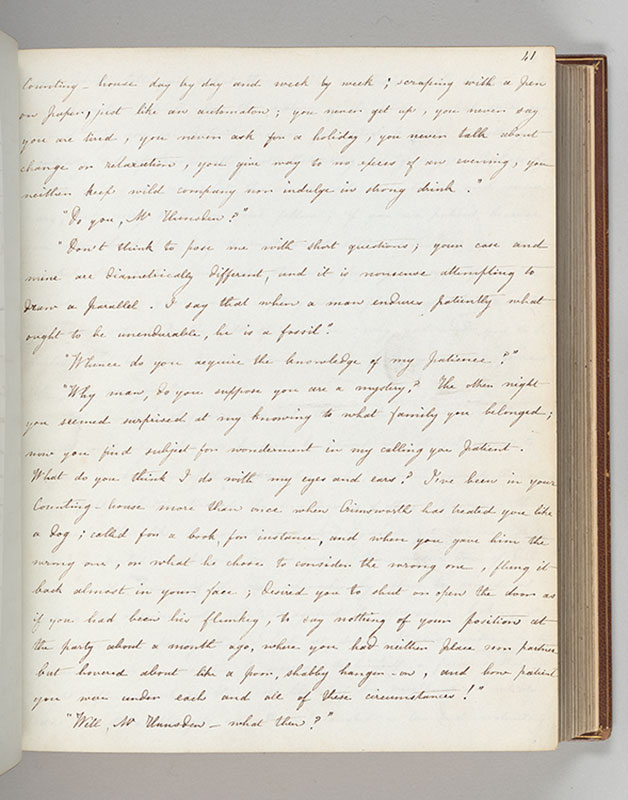 41
Counting-house day by day and week by week; scraping with a pen
on paper, just like an automaton; you never get up, you never say
you are tired, you never ask for a holiday, you never talk about
change or relaxation, you give way to no excess of an evening, you
neither keep wild company nor indulge in strong drink."
"Do you, Mr Hunsden?"
"Don't think to pose me with short questions; your case and
mine are diametrically different, and it is nonsense attempting to
draw a parallel. I say that when a man endures patiently what
ought to be unendurable, he is a fossil".
"Whence do you acquire the knowledge of my patience?"
"Why man, do you suppose you are a mystery? The other night
you seemed surprised at my knowing to what family you belonged;
now you find subject for wonderment in my calling you patient.
What do you think I do with my eyes and ears? I've been in your
Counting-house more than once when Crimsworth has treated you like
a dog; called for a book, for instance, and when you gave him the
wrong one, or what he chose to consider the wrong one, flung it
back almost in your face; desired you to shut or open the door as
if you had been his flunkey, to say nothing of your position at
the party about a month ago, where you had neither place nor partner
but hovered about like a poor, shabby hanger-on, and how patient
you were under each and all of these circumstances!"
"Well, Mr Hunsden – what then?"